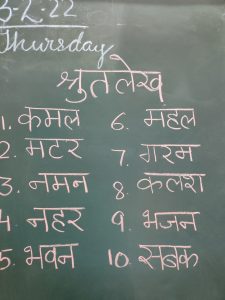 3-2-22
Thursday
श्रुतलेख
1. कमल 6. महल
2. मटर 7. गरम
3. नमन 8 कलश
4. नहर 9. भजन
5. भवन 10. सबक